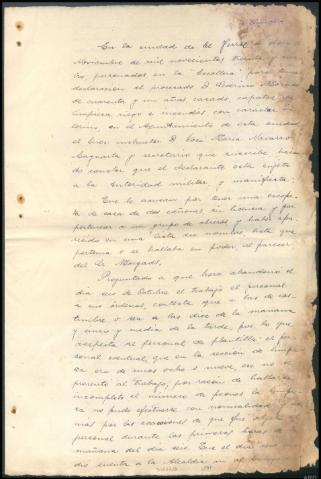 En la ciudad de El Ferrol a doce
Noviembre de mil novecientos treinta y
los personados en la "Escollera" para tomar
declaración al procesado D.
de cuarenta y un años casado, capataz de
limpieza riegos e incendios con carácter
en el Ayuntamiento de esta ciudad
el Juez instructor D. José María Navarro
y secretario que suscribe hacien
do constar que el declarante está sujeto
a la autoridad militar y manifiesta.
Que le acusan por tener una escope
ta de caza de dos cañones sin licencia y por
pertenecer a un grupo de obreros y haber apa
recido en una lista su nombre, lista que
se hallaba en poder al parecer
del Sr. Morgado.
Preguntado a que hora abandonó el
día seis de Octubre el trabajo el personal
a sus órdenes, contesta que a las de cos-
tumbre o sea a las doce de la mañana
y cinco y media de la tarde, por lo que
respecta al personal de plantilla; el per
sonal eventual, que en la sección de limpie
za era de unos ocho o nueve, ese no se
presentó al trabajo; por razón de hallarse
incompleto el número de peones la limpie
za no pudo efectuarse con normalidad y
mas por las coacciones de que fué
personal durante las primeras horas de la
mañana del día seis. Que el día seis
dió cuenta a la Alcaldía